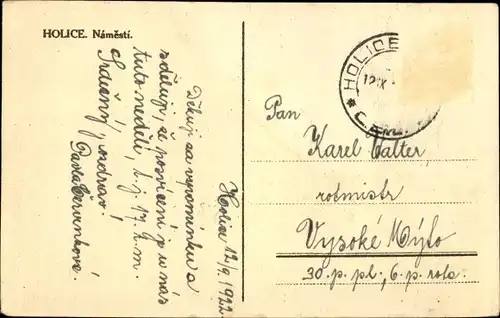 HOLICE. Náměstí.
Holice 12/9. 1922.
Děkuji za vzpomínku a
sděluji, že posvícení je u nás
tuto neděli, t.j. 17. t.m.
Srdečný pozdrav!
Pavla Červinková.
HOLICE
12.IX
Pan
Karel Valter,
rotmistr
Vysoké Mýto
30. p. pl., 6. p. rota.